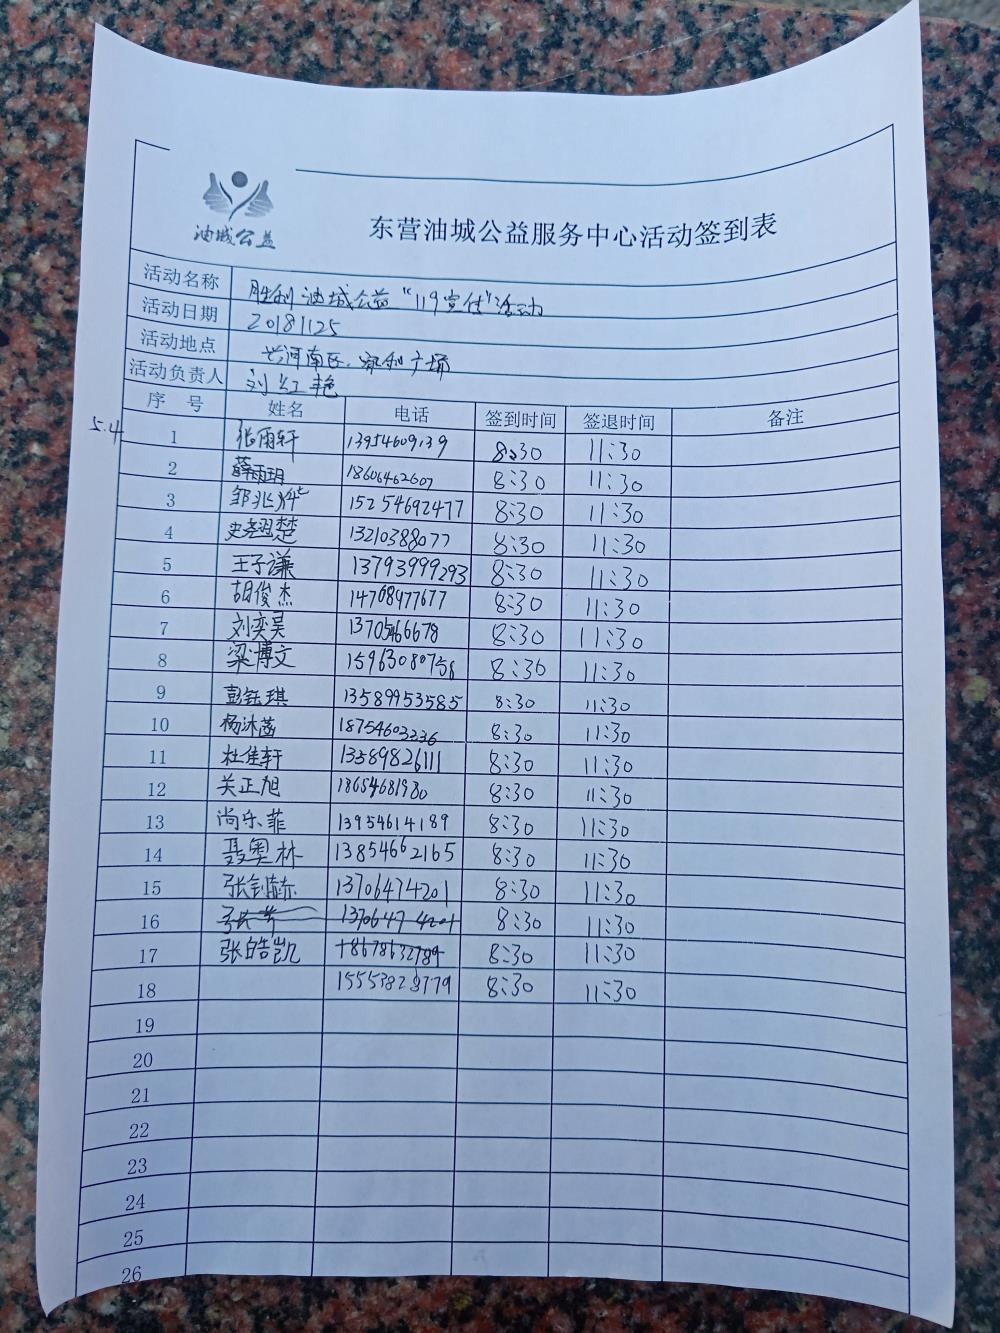 油城公益
东营油城公益服务中心活动签到表
活动名称 胜利油城公益“119宣传”活动
活动日期 20181125
活动地点 兴河南区.家和广场
活动负责人 刘红艳
序号 姓名 电话 签到时间 签退时间 备注
5.4
1 张雨轩 13954609139 8:30 11:30
2 薛雨玥 18606462607 8:30 11:30
3 邹兆烨 15254692477 8:30 11:30
4 史尧翌楚 13210388077 8:30 11:30
5 王子谦 13793999293 8:30 11:30
6 胡俊杰 14768977677 8:30 11:30
7 刘奕昊 1370546678 8:30 11:30
8 梁博文 15963080758 8:30 11:30
9 彭钰琪 13589953585 8:30 11:30
10 杨沐菡 18754603236 8:30 11:30
11 杜佳轩 13589826111 8:30 11:30
12 关正旭 18654681980 8:30 11:30
13 尚乐菲 13954614189 8:30 11:30
14 聂奥林 13854662165 8:30 11:30
15 张钊赫 13706474201 8:30 11:30
16 13706474201 8:30 11:30
17 张皓凯 18678632789 8:30 11:30
18 15553828779 8:30 11:30
19
20
21
22
23
24
25
26